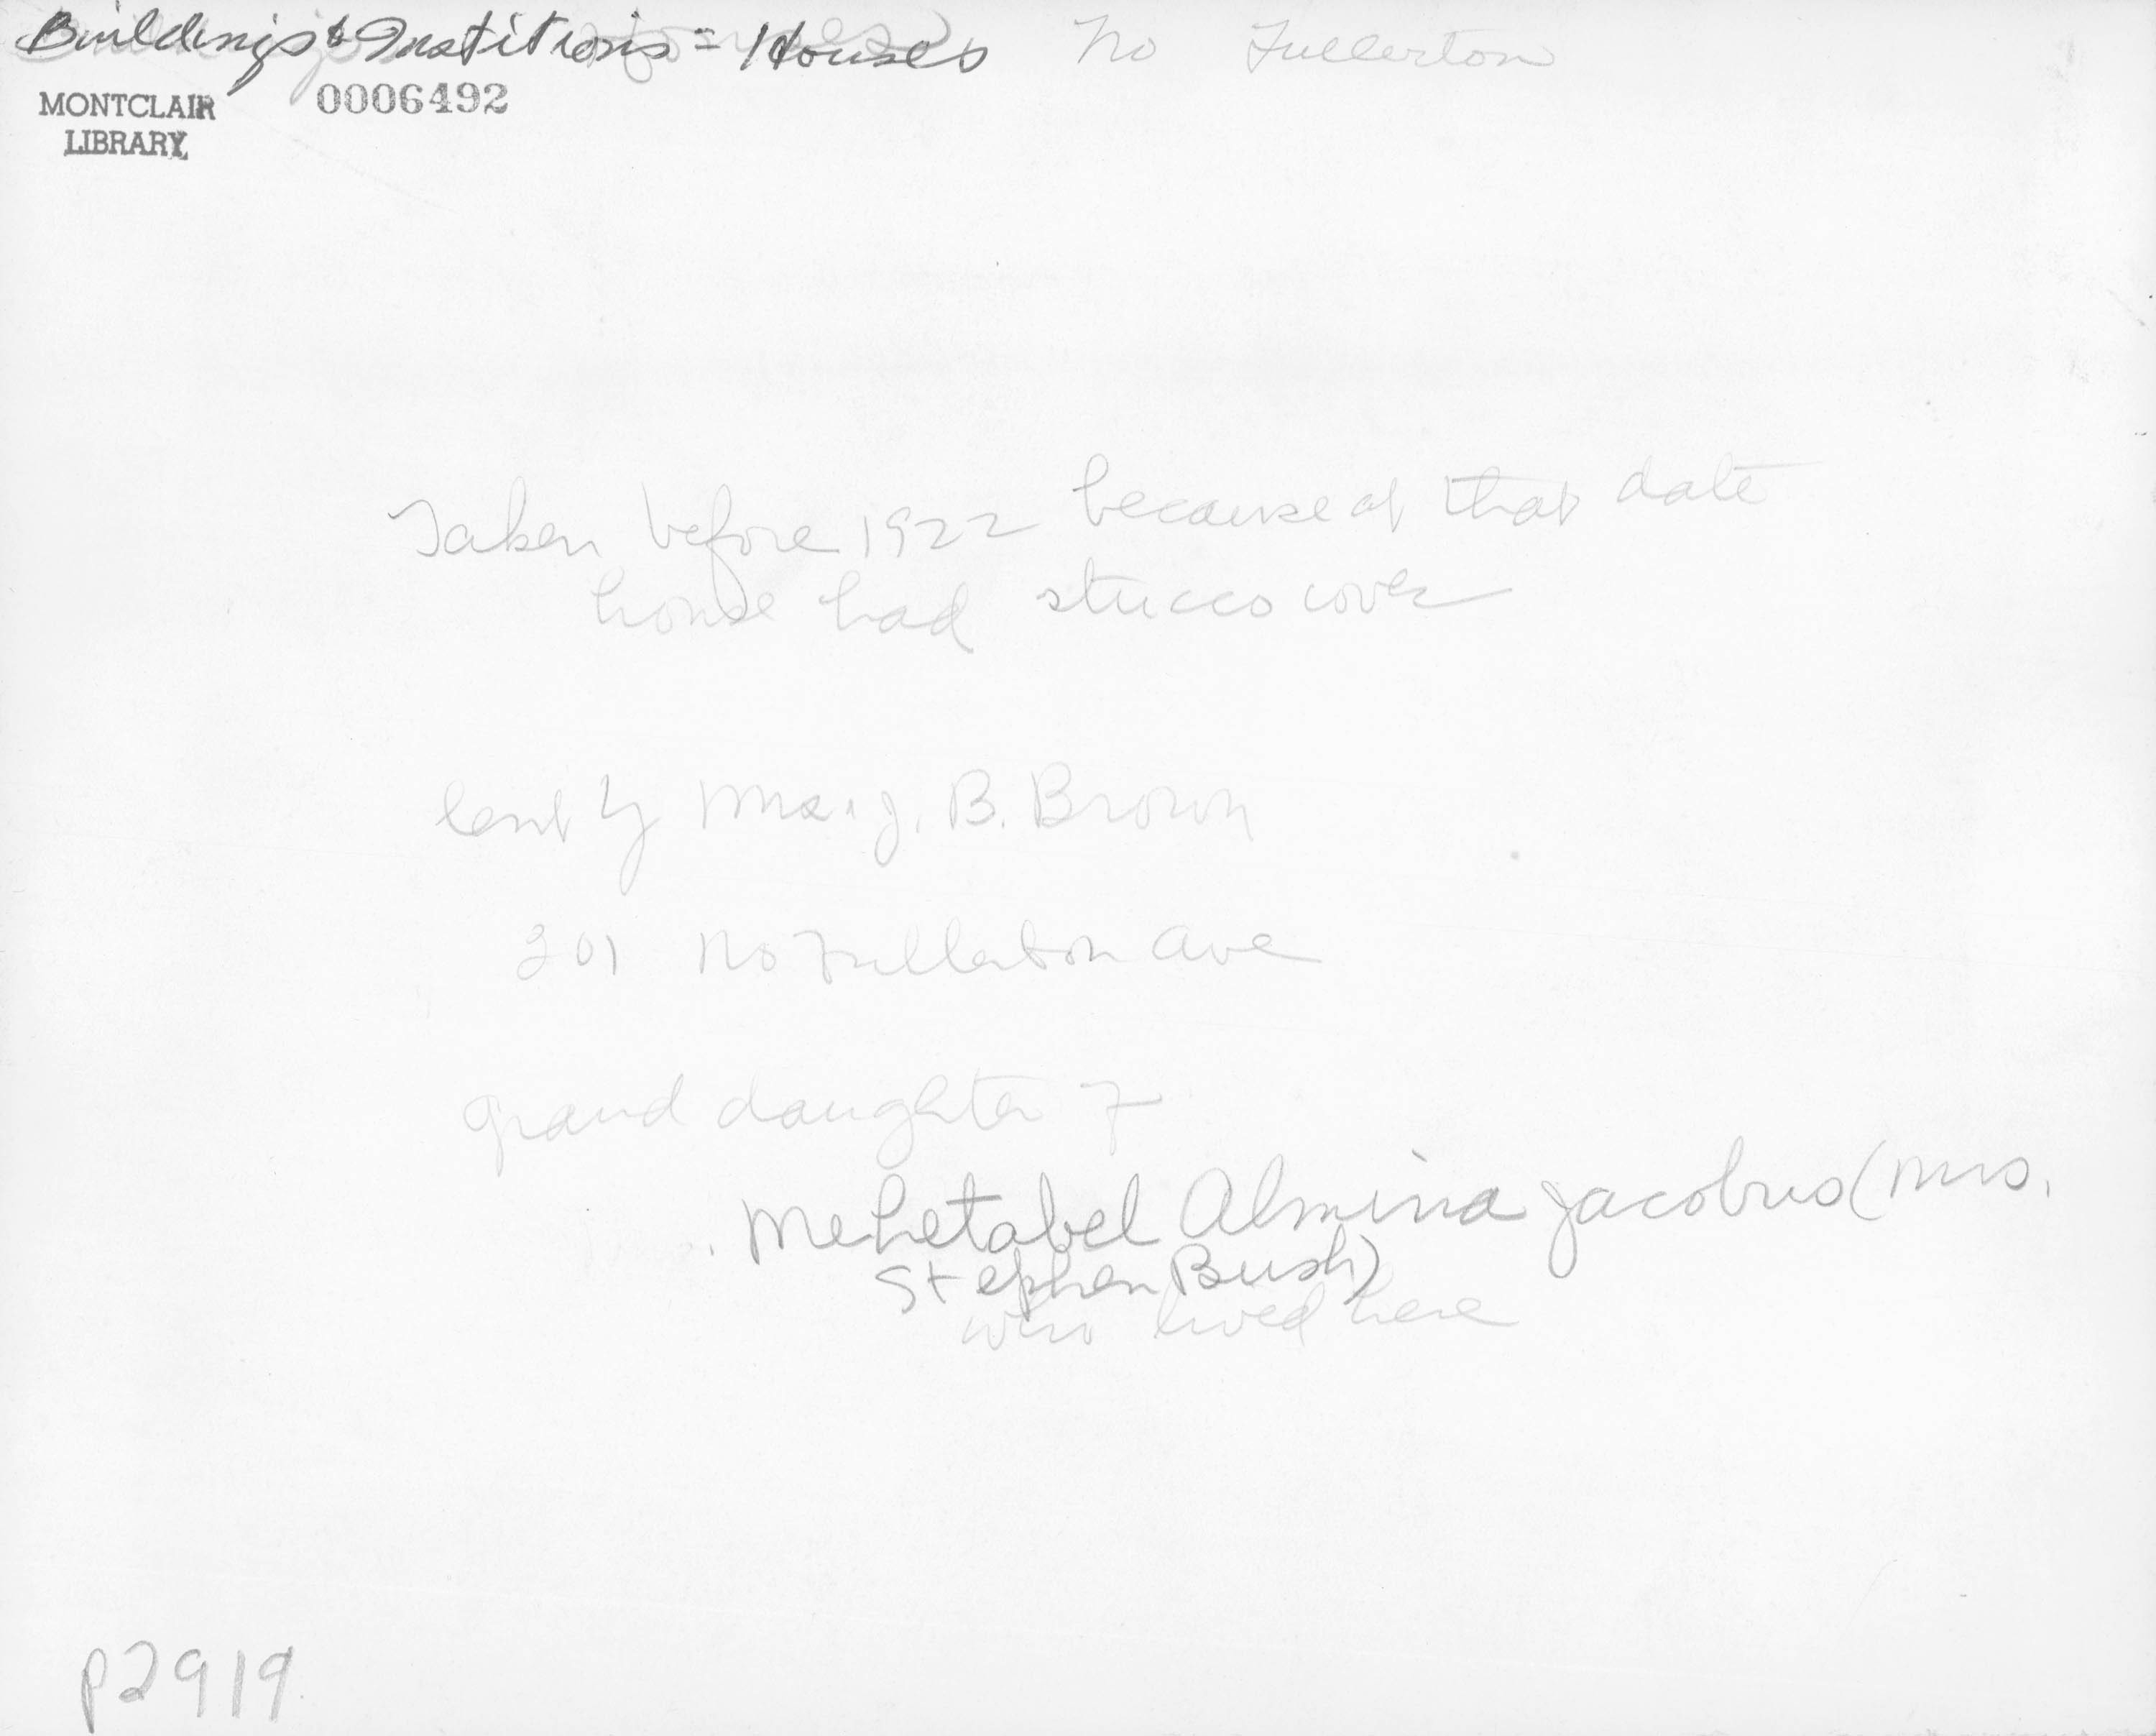 Buildings & Institutions = Houses No Fullerton
MONTCLAIR 0006492
LIBRARY
Taken before 1922 because at that date
house had stucco cover
lent by Mrs. J. B. Brown
201 No Fullerton Ave
grand daughter of
Mehetabel Almina Jacobus (Mrs.
Stephen Bush)
who lived here
P2919